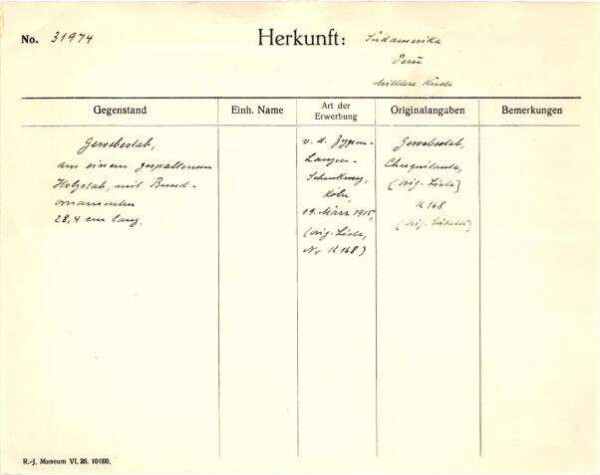 No. 31974
Herkunft:
Südamerika
Peru
Mittlere Küste
Gegenstand
Einh. Name
Art der Erwerbung
Originalangaben
Bemerkungen
Gewebestab,
aus einem gespaltenen
Holzstab, mit Brand-
ornamenten
28,4 cm lang.
v. d. Zypen-
Langen-
Schenkung,
Köln,
19. März 1915,
(orig. Liste,
Nr K 168)
Gewebestab,
Chuquitanta,
(orig. Liste)
K 168
(orig.
R.-J. Museum VI. 26. 10000.